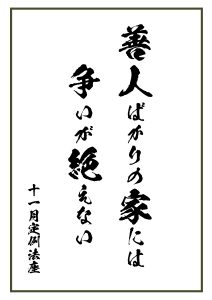 善人ばかりの家には
争いが絶えない
十一月定例法座